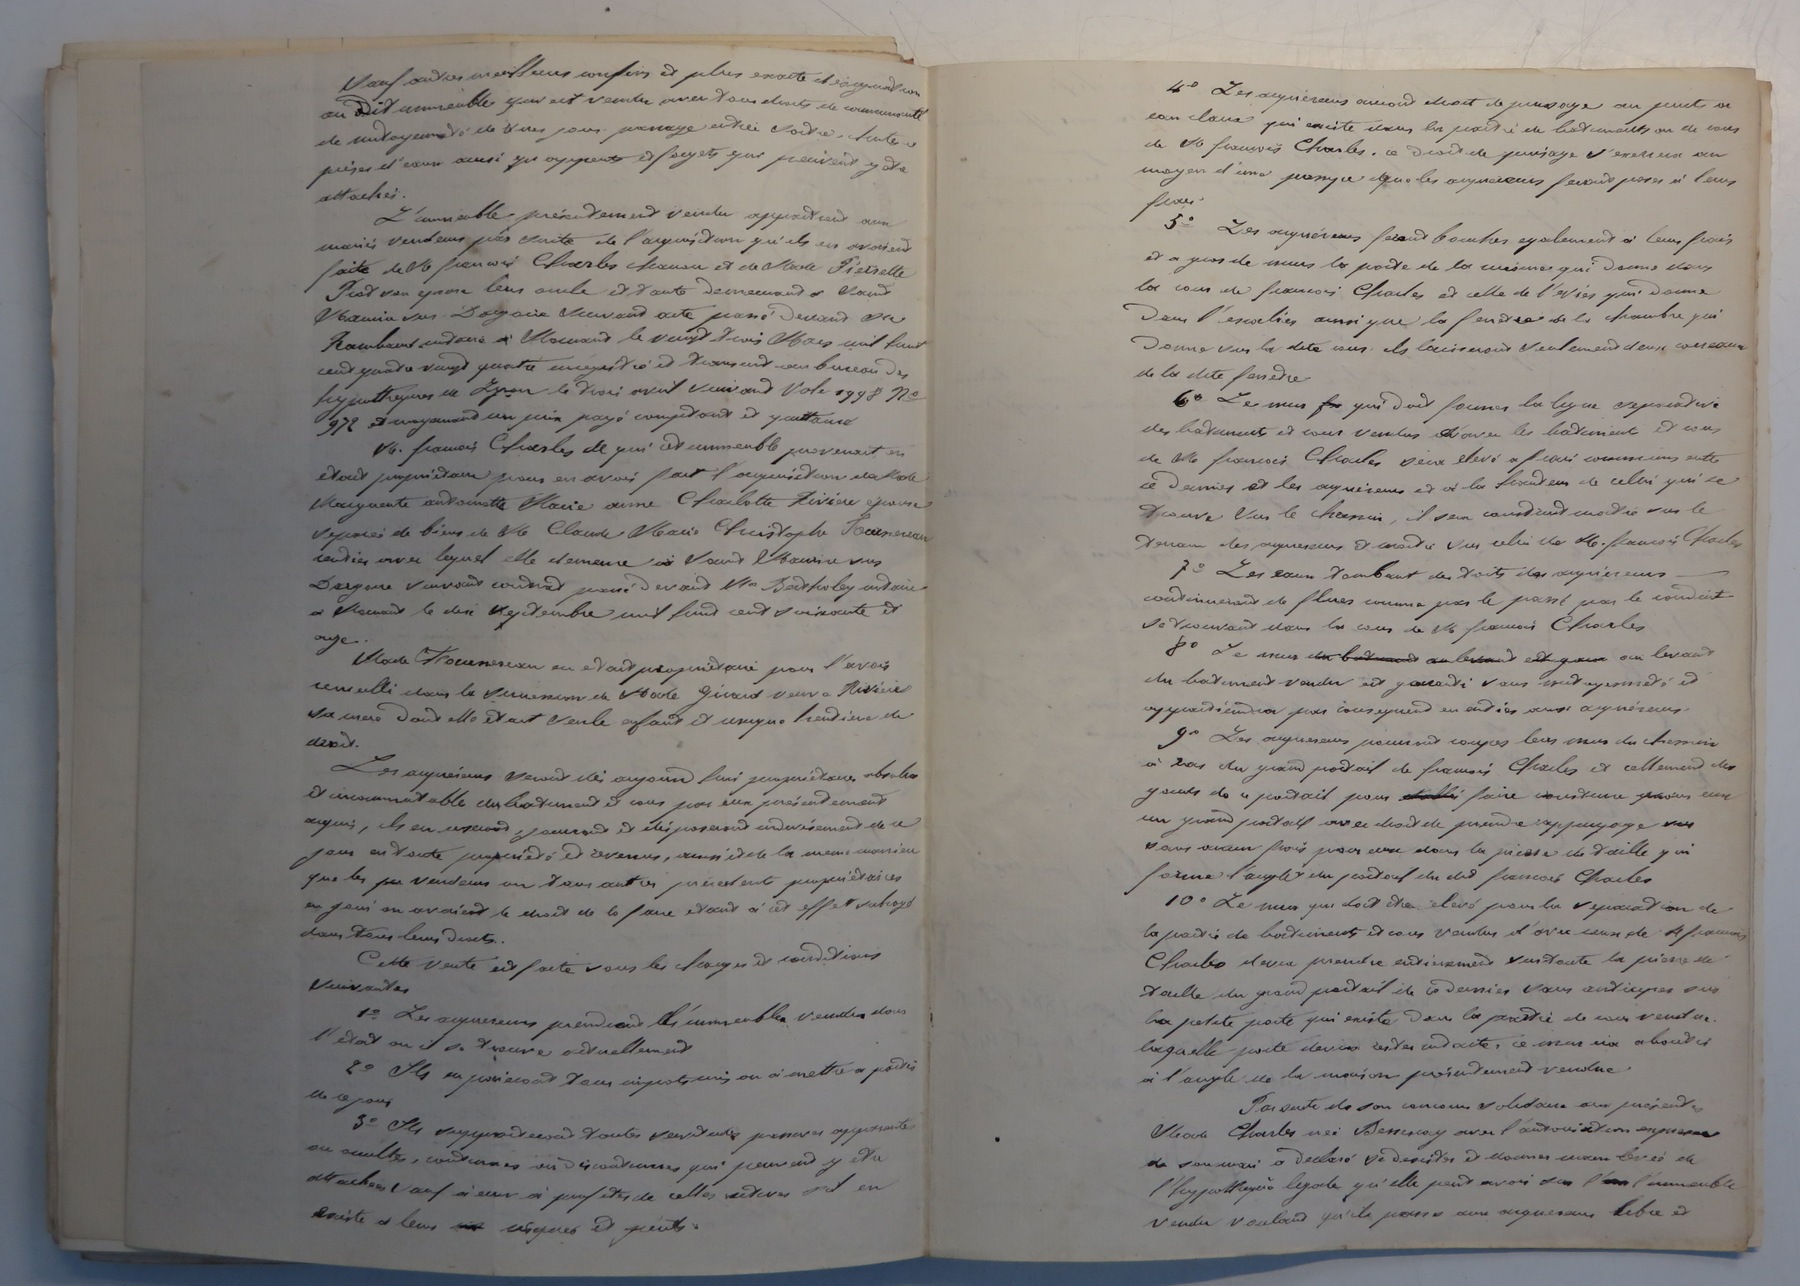 Sauf autres meilleurs confins et plus exacte désignation
au Dit immeuble qui est vendu avec tous droits de communauté
de mitoyenneté de vues jours passage entrée sortie chute
prises d'eaux ainsi qu'appents et forgets qui peuvent y être
attachés.
L'immeuble présentement vendu appartient aux
mariés vendeurs par suite de l'acquisition qu'ils en avaient
faite de M françois Charles et de Made Pierrette
son épouse leurs oncle et tante demeurant à Saint
Maurice sur Dargoire suivant acte passé devant Me
notaire à Mornant le vingt trois Mars mil huit
cent quatre vingt quatre enregistré et transcrit au bureau des
hypothèques de Lyon le trois avril suivant Vole 1998 No
972 et moyennant un prix payé comptant et quittancé
M. françois Charles de qui cet immeuble provenait en
était propriétaire pour en avoir fait l'acquisition de Made
Marguerite antoinette Marie anne Charlotte Rivière épouse
séparée de biens de M Claude Marie Christophe Fournereau
rentier avec lequel elle demeure à Saint Maurice sur
Dargoire suivant contrat passé devant Me Bertholey notaire
à Mornant le dix Septembre mil huit cent soixante et
onze.
Made Fournereau en était propriétaire pour l'avoir
recueilli dans la succession de Made Girard veuve Rivière
sa mère dont elle était seule enfant et unique héritière de
droit.
Les acquéreurs seront dès aujourd'hui propriétaires absolus
et incommutable du batiment et cour par eux présentement
acquis, ils en useront jouiront et disposeront indivisément de ce
jour en toute propriété et revenus, ainsi et de la même manière
que les vendeurs ou tous autres précédents propriétaires
en joui ou avaient le droit de le faire étant à cet effet subrogé
dans tous leurs droits.
Cette vente est faite sous les charges et conditions
suivantes
1o Les acquéreurs prendront l'immeuble vendu dans
l'état où il se trouve actuellement
2o Ils en paieront tous impots mis ou à mettre à partir
de ce jour
3o Ils supporteront toutes servitudes passives apparentes
ou occultes, continues ou discontinues qui peuvent y être
attachées sauf à eux à profiter de celles actives s'il en
existe à leurs risques et périls.
4o Les acquéreurs auront droit de puisage au puits
eau claire qui existe dans la partie de batiments ou de cour
de M françois Charles. ce droit de puisage s'exercera au
moyen d'une pompe que les acquéreurs feront poser à leurs
frais.
5o Les acquéreurs feront boucher également à leurs frais
et à gros de murs la porte de la cuisine qui donne dans
la cour de françois Charles et celle de l'évier qui donne
dans l'escalier ainsi que la fenêtre de la chambre qui
donne sur la dite cour. ils laisseront seulement deux carreaux
de la dite fenêtre
6o Le mur qui doit former la ligne séparative
des batiments et cour vendus d'avec les batiments et cour
de M françois Charles sera élevé à frais communs entre
ce dernier et les acquéreurs et à la hauteur de celui qui se
trouve sur le chemin, il sera construit moitié sur le
terrain des acquéreurs et moitié sur celui de M. françois Charles
7o Les eaux tombant des toits des acquéreurs
continueront de fluer comme par le passé par le conduit
se trouvant dans la cour de M françois Charles
8o Le mur du batiment au levant est au levant
du batiment vendu est garanti sans mitoyenneté et
appartiendra par conséquent en entier aux acquéreurs.
9o Les acquéreurs pourront couper leur mur du chemin
à ras du grand portail de françois Charles et
gonds de ce portail pour faire construire pour eux
un grand portail avec droit de prendre appuyage
sans aucun frais pour eux dans la pierre de taille qui
forme l'angle du portail du dit françois Charles
10o Le mur qui doit être élevé pour la séparation de
la partie de batiments et cour vendus d'avec ceux de M françois
Charles devra prendre entièrement sur toute la pierre de
taille du grand portail de ce dernier sans anticiper sur
la petite porte qui existe dans la partie de cour vendue.
laquelle porte devra rester intacte, ce mur ira aboutir
à l'angle de la maison présentement vendue.
Par suite de son concours solidaire aux présentes
Made Charles née avec l'autorisation expresse
de son mari a déclaré se désister et donner main levée de
l'hypothèque légale qu'elle peut avoir sur l'immeuble
vendu voulant qu'il passe aux acquéreurs libre et